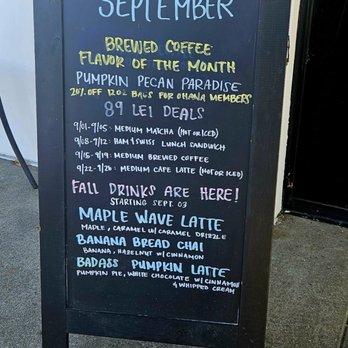 SEPTEMBER
BREWED COFFEE
FLAVOR OF THE MONTH
PUMPKIN PECAN PARADISE
20% OFF 12OZ BAGS FOR OHANA MEMBERS
89 LEI DEALS
9/01-9/05: MEDIUM MATCHA (HOT OR ICED)
9/08-9/12: HAM & SWISS LUNCH SANDWICH
9/15-9/19: MEDIUM BREWED COFFEE
9/22-9/26: MEDIUM CAFE LATTE (HOT OR ICED)
FALL DRINKS ARE HERE!
STARTING SEPT. 03
MAPLE WAVE LATTE
MAPLE, CARAMEL W/ CARAMEL DRIZZLE
BANANA BREAD CHAI
BANANA, HAZELNUT W/ CINNAMON
BADASS PUMPKIN LATTE
PUMPKIN PIE, WHITE CHOCOLATE W/ CINNAMON
& WHIPPED CREAM